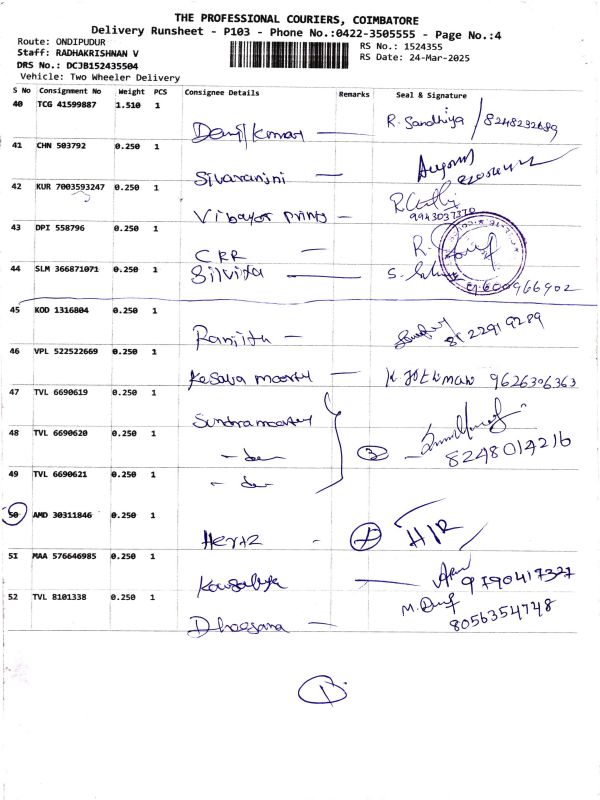 THE PROFESSIONAL COURIERS, COIMBATORE
Delivery Runsheet - P103 - Phone No.:0422-3505555 - Page No.:4
Route: ONDIPUDUR
Staff: RADHAKRISHNAN V
DRS No.: DCJB152435504
Vehicle: Two Wheeler Delivery
RS No.: 1524355
RS Date: 24-Mar-2025
S No Consignment No Weight PCS Consignee Details Remarks Seal & Signature
40 TCG 41599887 1.510 1
R. Sandhiya / 8248232689
41 CHN 503792 0.250 1
Sivaranjni —
42 KUR 7003593247 0.250 1
Vibayor prints —
9943037770
43 DPI 558796 0.250 1
CRR —
44 SLM 366871071 0.250 1
Silviya —
9600966902
45 KOD 1316804 0.250 1
Ranjith —
46 VPL 522522669 0.250 1
Kesava moorthy — 9626306363
47 TVL 6690619 0.250 1
48 TVL 6690620 0.250 1
3
8248014216
49 TVL 6690621 0.250 1
50 AMD 30311846 0.250 1
Hertz - H/R
51 MAA 576646985 0.250 1
Kousalya — 9790417327
52 TVL 8101338 0.250 1
8056354748
1